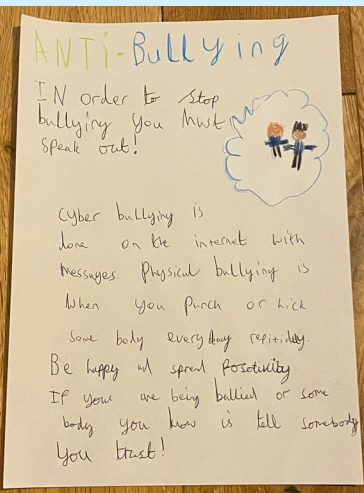 ANTi-Bullying
IN order to stop
bullying you Must
speak out!
Cyber bullying is
done on the internet with
messages. Physical bullying is
When you Punch or kick
some body everyday repitidly.
Be happy and spread Posotivity
If your are being bullied or some
body you know is tell somebody
you trust!